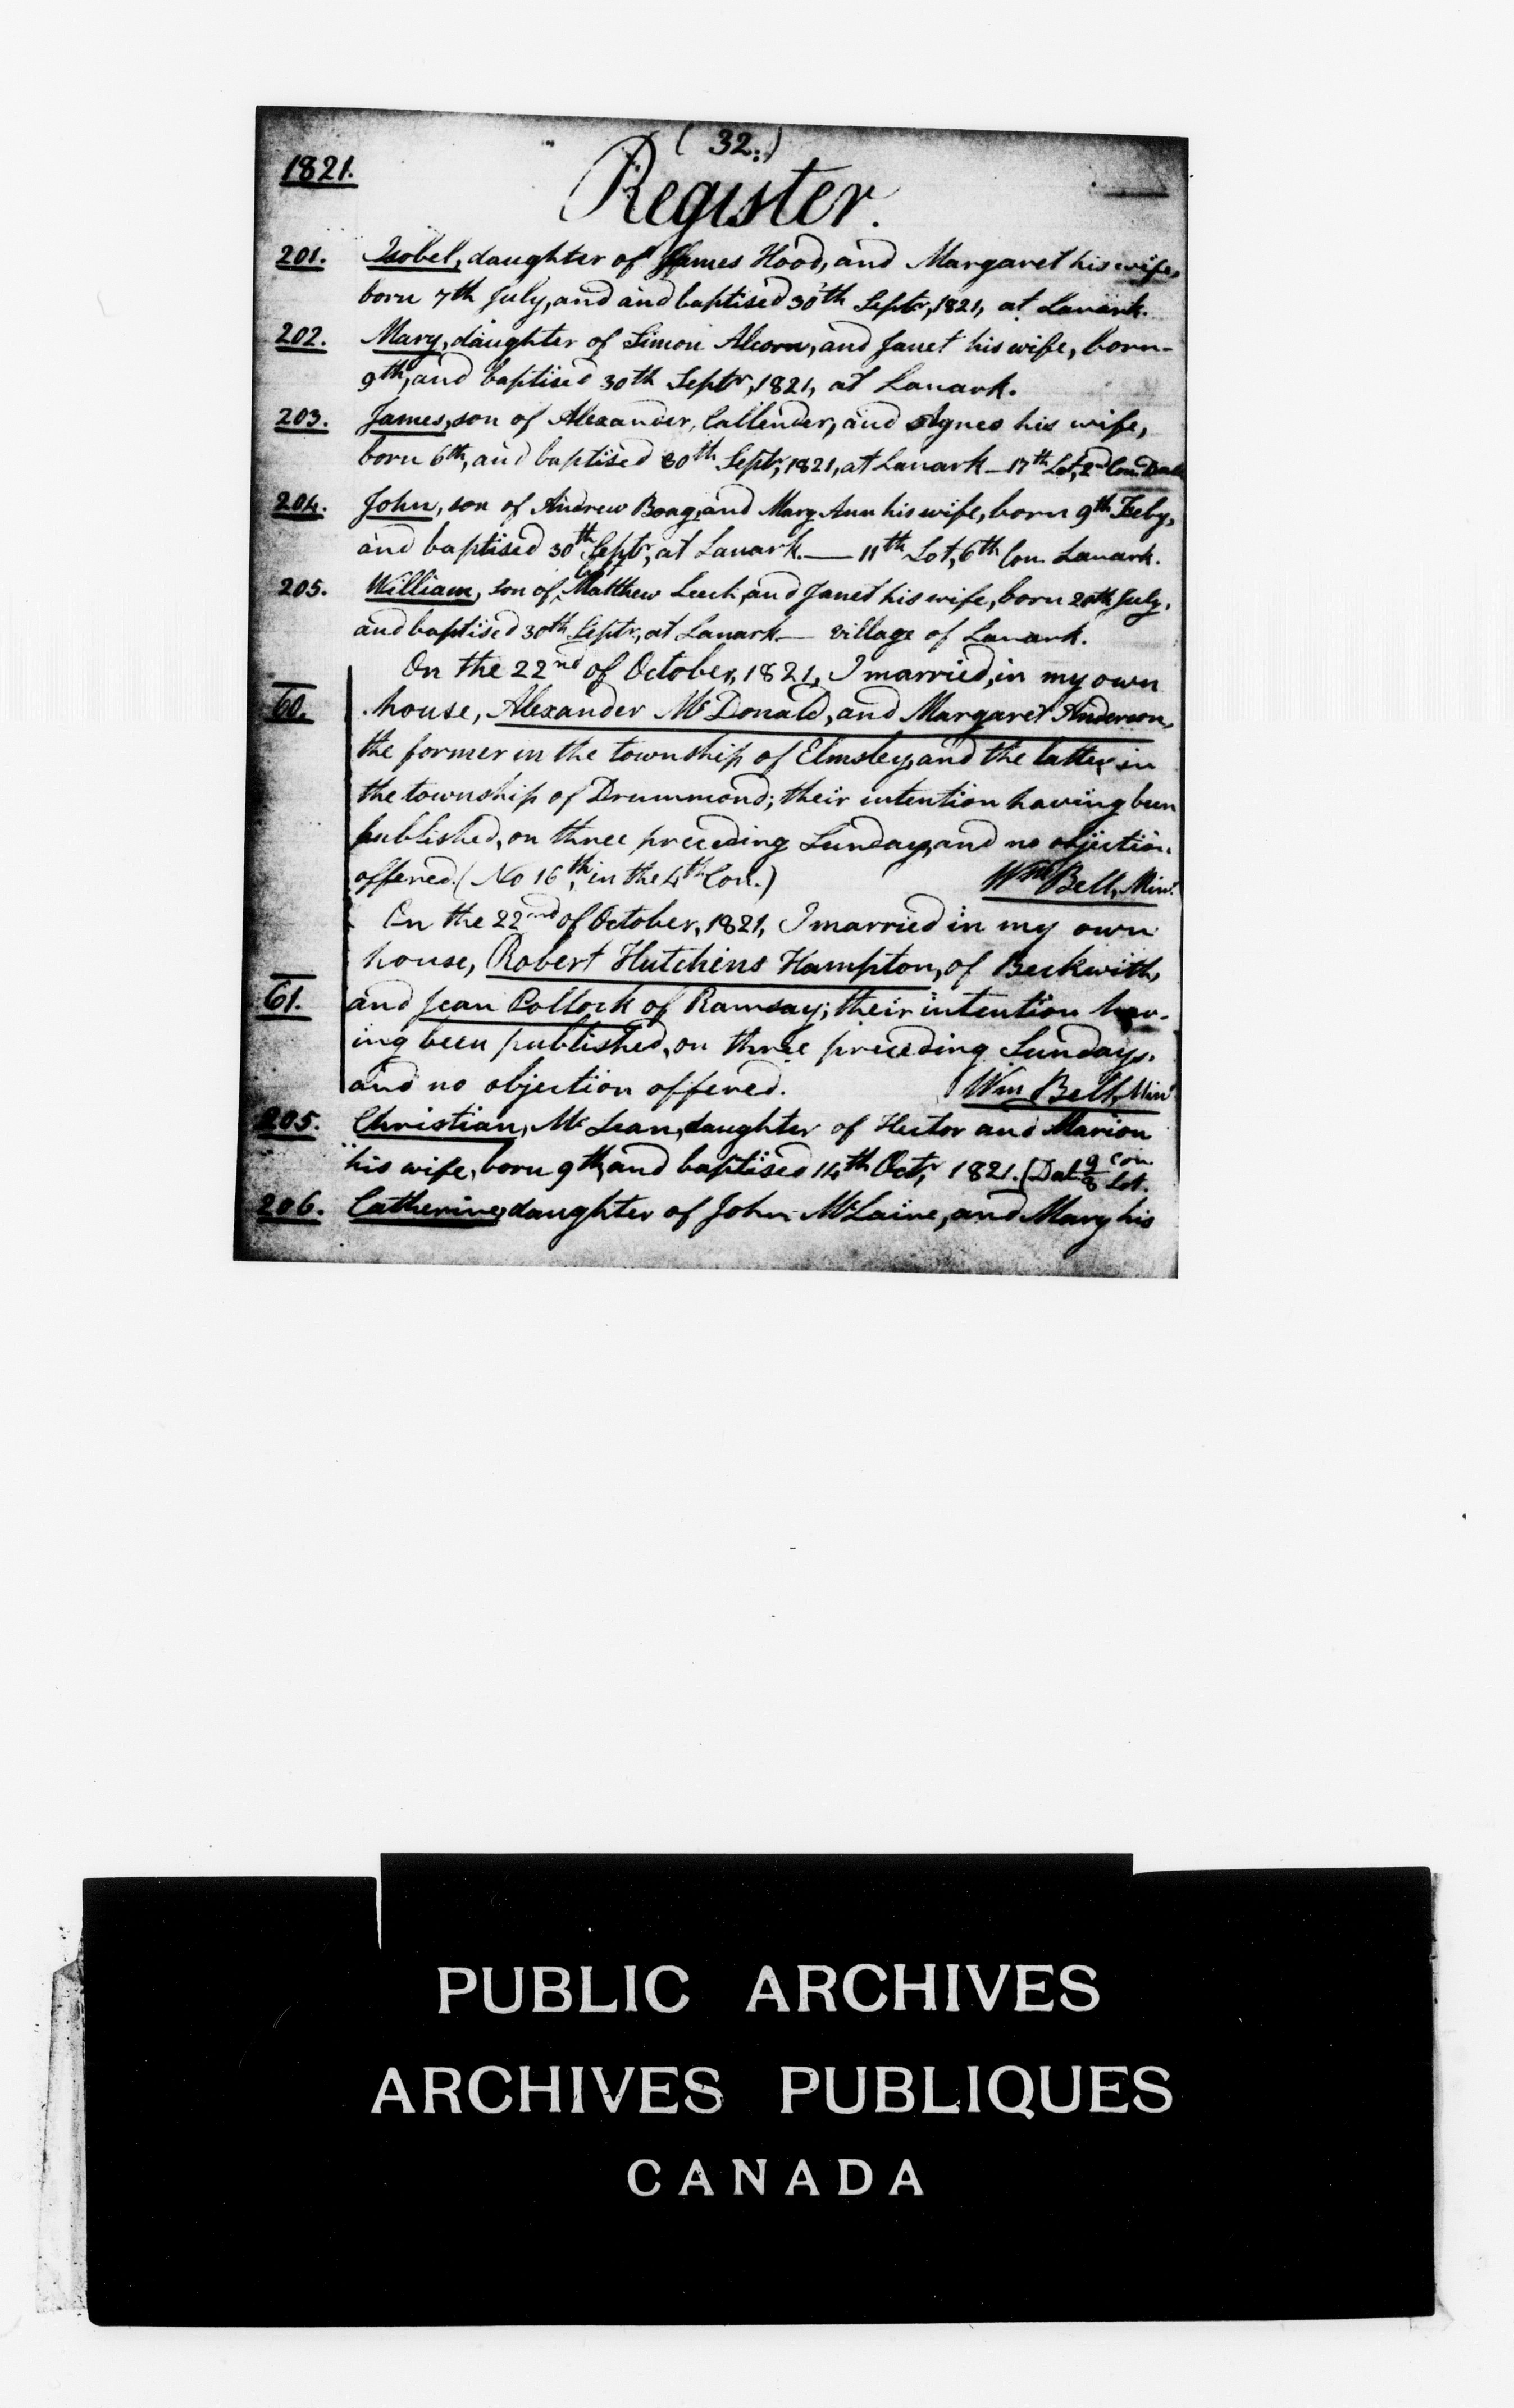 ( 32. )
1821.
Register.
201. Isobel, daughter of James Hood, and Margaret his wife,
born 7th July, and and baptised 30th Septr, 1821, at Lanark.
202. Mary, daughter of Simon Alcorn, and Janet his wife, born
9th, and baptised 30th Septr, 1821, at Lanark.
203. James, son of Alexander Callender, and Agnes his wife,
born 6th, and baptised 30th Septr, 1821, at Lanark — 17th Lot, 2nd Con.
204. John, son of Andrew Boag, and Mary Ann his wife, born 9th Feby,
and baptised 30th Septr, at Lanark. — 11th Lot, 6th Con. Lanark.
205. William, son of Matthew Leech, and Janet his wife, born 20th July,
and baptised 30th Septr, at Lanark — village of Lanark.
On the 22nd of October, 1821, I married, in my own
60. house, Alexander McDonald, and Margaret Anderson,
the former in the township of Elmsley, and the latter in
the township of Drummond; their intention having been
published, on three preceding Sundays, and no objection
offered. (No 16th, in the 4th Con.) Wm Bell, Minr.
On the 22nd of October, 1821, I married in my own
house, Robert Hutchins Hampton, of Beckwith,
61. and Jean Pollock of Ramsay; their intention hav-
ing been published, on three preceding Sundays,
and no objection offered. Wm Bell, Minr
205. Christian, McLean, daughter of Hector and Marion
his wife, born 9th, and baptised 14th Octr, 1821. (Dal. 9 Con 8 Lot.
206. Catherine, daughter of John McLaine, and Mary his
PUBLIC ARCHIVES
ARCHIVES PUBLIQUES
CANADA